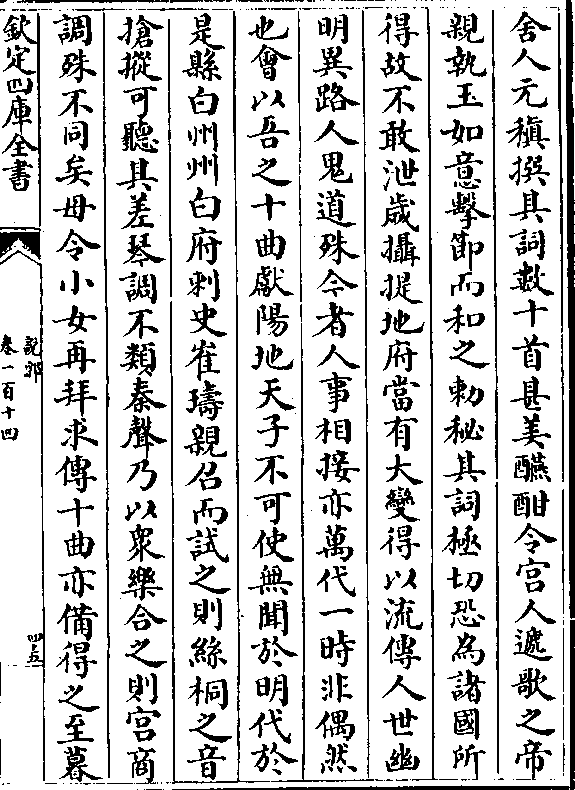 舍人元稹撰其詞數十首甚美醼酣令宫人遞歌之帝
親執玉如意擊節而和之勅秘其詞極切恐為諸國所
得故不敢泄歲攝提地府當有大變得以流傳人世幽
明異路人鬼道殊今者人事相接亦萬代一時非偶然
也㑹以吾之十曲獻陽地天子不可使無聞於明代於
是縣白州州白府刺史崔璹親召而試之則絲桐之音
搶摐可聽其差琴調不類秦聲乃以衆樂合之則宫商
調殊不同矣母令小女再拜求傳十曲亦備得之至暮
欽定四庫全書
說郛
卷一百十四
四十五